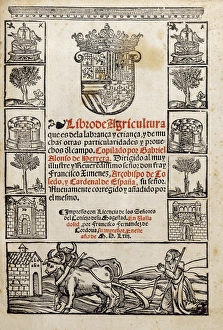 Libro de Agricultura
que es de la labrança y criança, y de mu
chas otras particularidades y proue
chos del campo. Copilado por Gabriel
Alonso de Herrera. Dirigido al muy
illustre y Reuerendissimo señor don fray
Francisco Ximenez, Arçobispo de To
ledo, y Cardenal de España, su señor.
Nueuamente corregido y añadido por
el mesmo.
Impresso con Licencia de los Señores
del Consejo de su Magestad. En Valla
dolid por Francisco Fernandez de
Cordoua su impressor. En este
año de M. D. Lxiii.